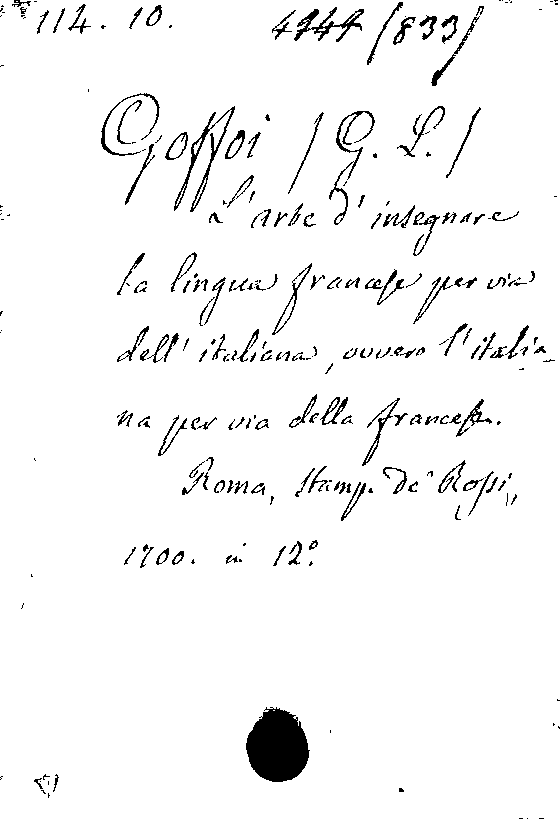 114. 10. 4144 (833)
Goffoi (G. L.)
L'arte d'insegnare
la lingua francese per via
dell'italiana, ovvero l'italia-
na per via della francese.
Roma, stamp. de' Rossi,
1700. in 12º.